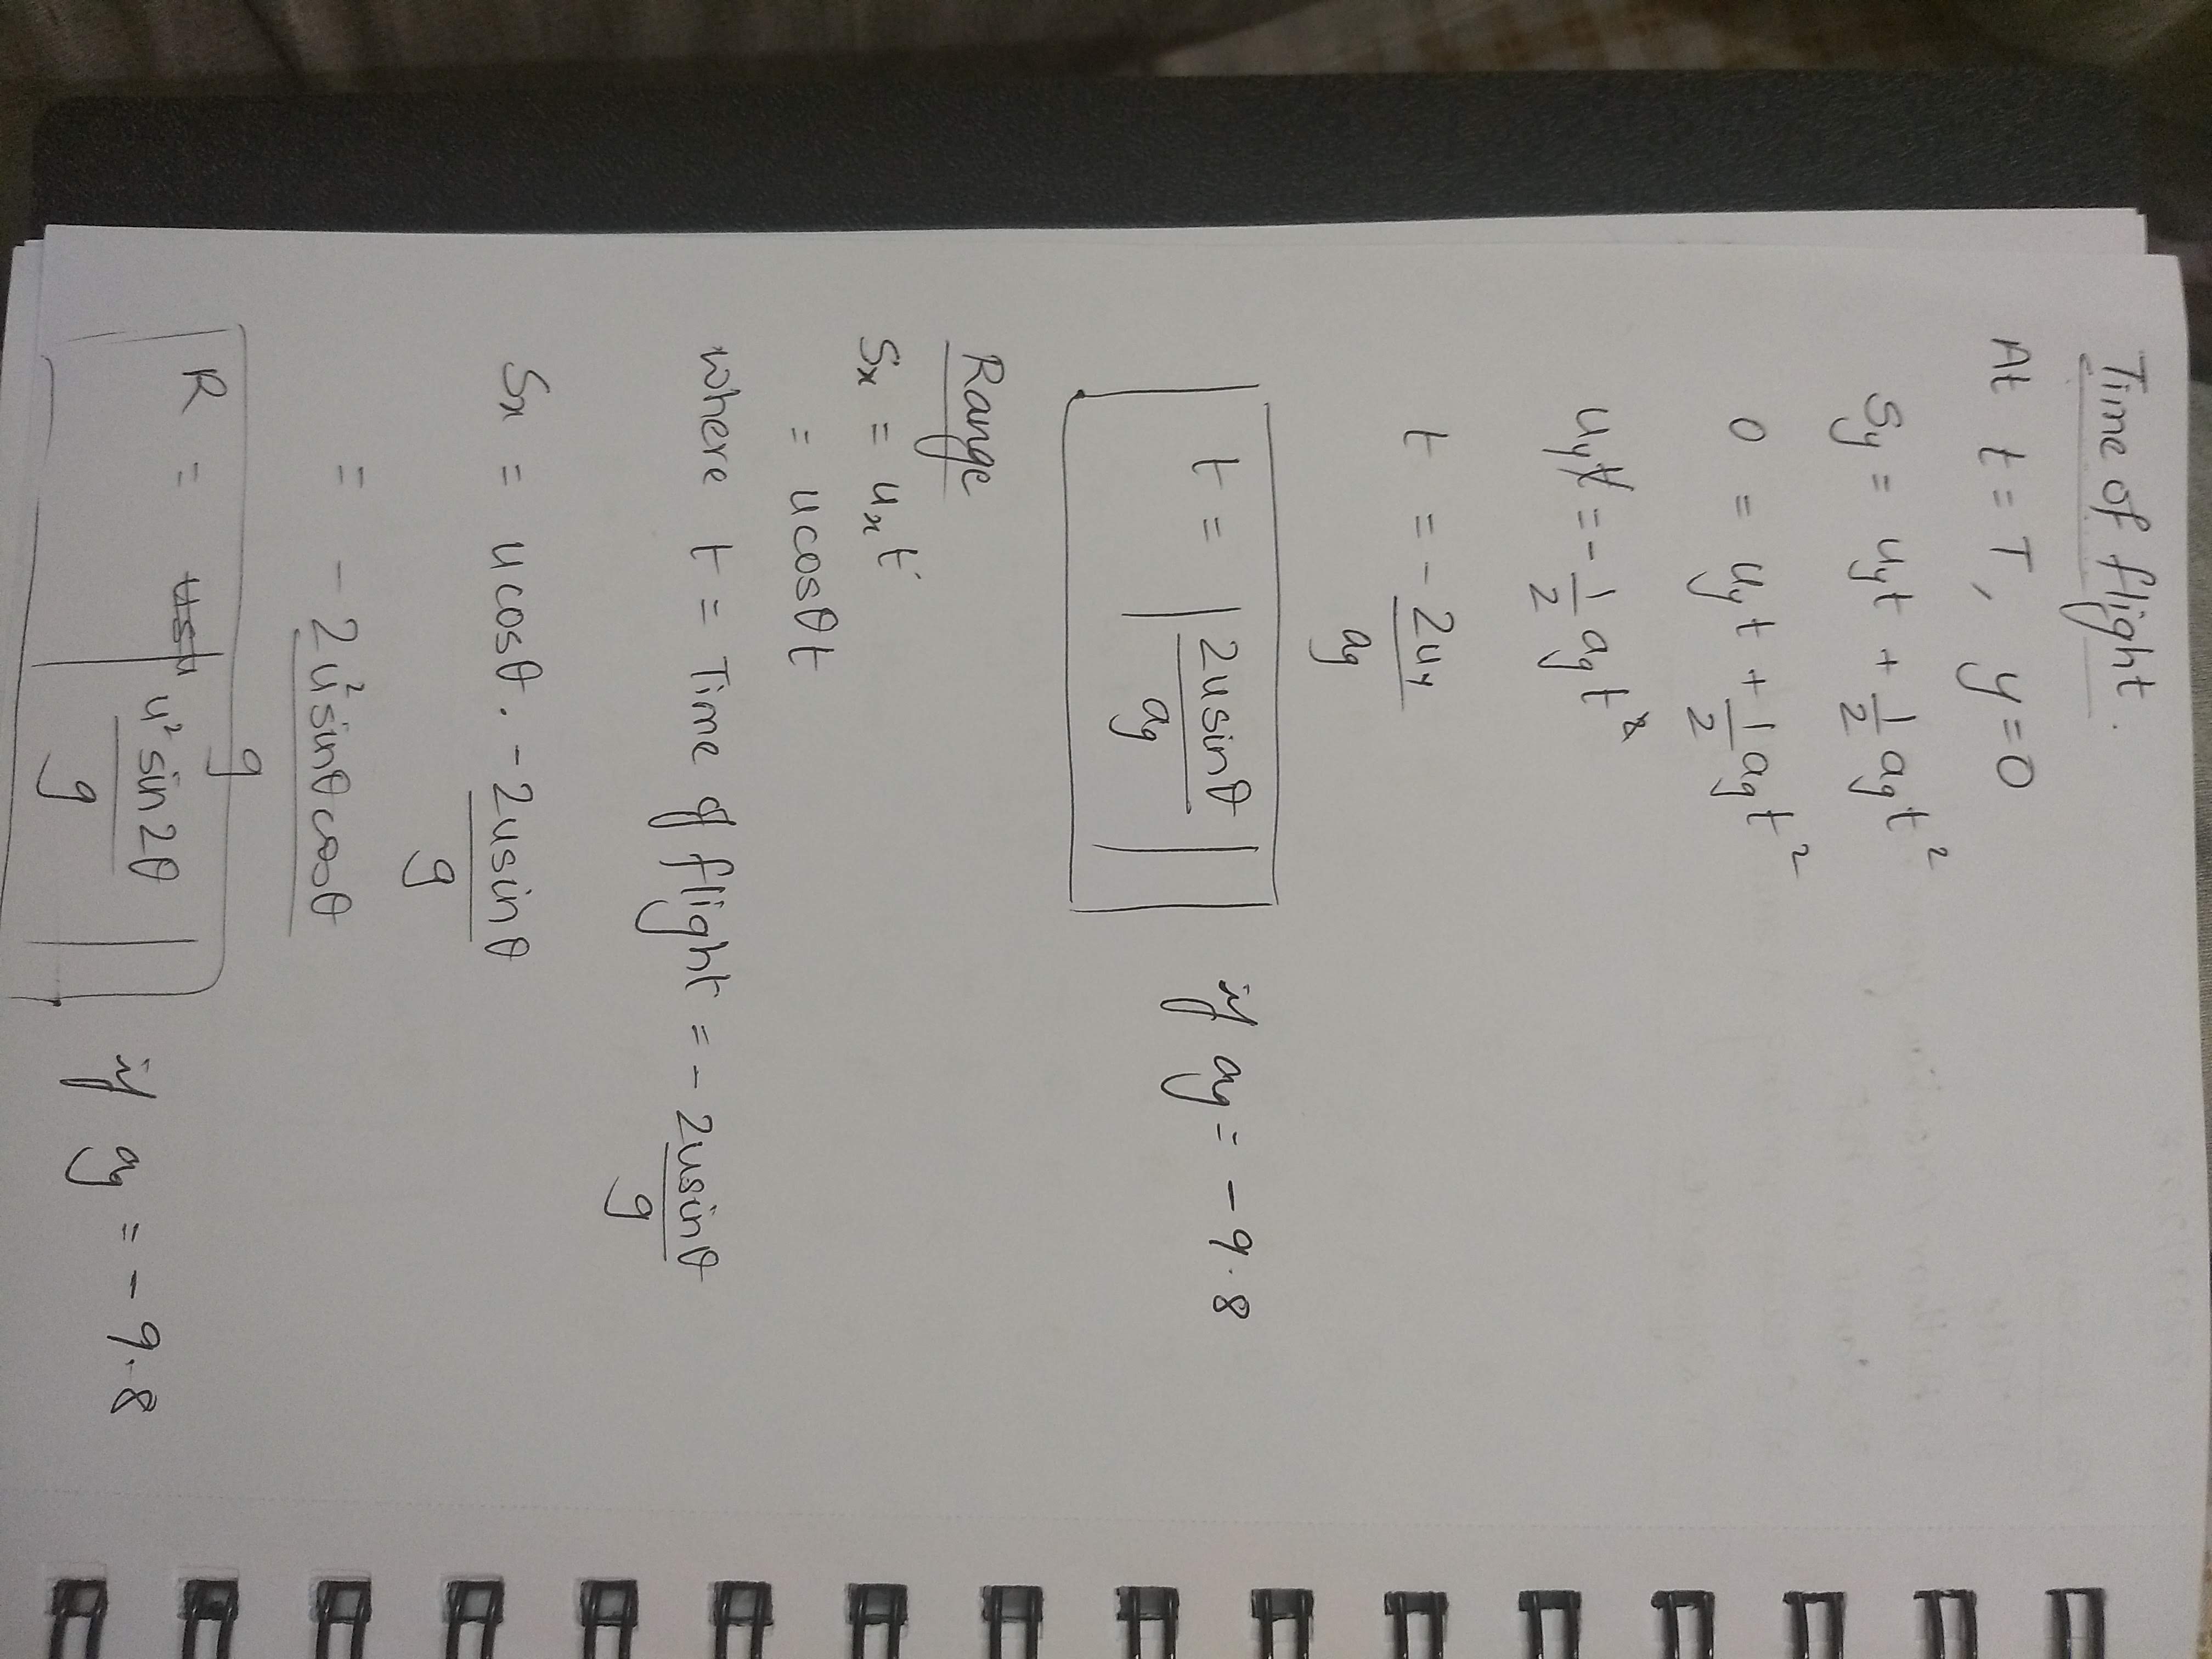 Time of flight.
At t = T, y = 0
Sy = uyt + 1/2 ayt²
0 = uyt + 1/2 ayt²
uyt = - 1/2 ayt²
t = - 2uy/ay
t = | 2usinθ/ay | if ay = -9.8
Range
Sx = uxt
= ucosθt
where t = Time of flight = - 2usinθ/g
Sx = ucosθ . - 2usinθ/g
= - 2u²sinθcosθ/g
R = | u²sin2θ/g | if ay = -9.8